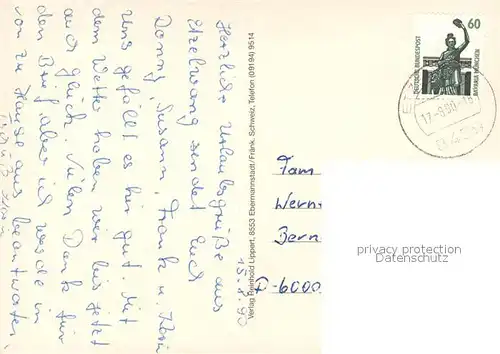 Herzliche Urlaubsgrüße aus
Etzelwang sendet Euch
Donny, Susann, Frank u. Rosi
Uns gefällt es hier gut. Mit
dem Wetter haben wir bis jetzt
auch Glück. Vielen Dank für
den Brief, aber ich werde in
von zu Hause aus beantworten.
15.8.90
Verlag Reinhold Lippert, 8553 Ebermannstadt/Fränk. Schweiz, Telefon (09194) 9514
60
DEUTSCHE BUNDESPOST
BAVARIA MÜNCHEN
17-8.90-16
Fam
Wern
Bern
D-6000
privacy protection
Datenschutz